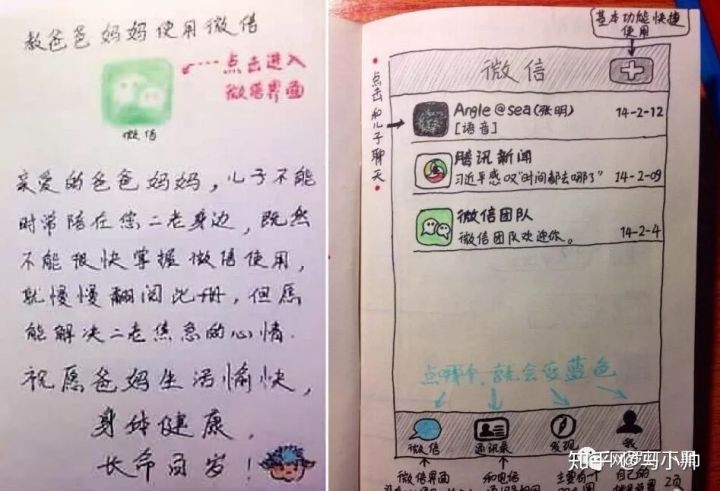 教爸爸妈妈使用微信
点击进入
微信界面
微信
亲爱的爸爸妈妈，儿子不能
时常陪在您二老身边，既然
不能很快掌握微信使用，
就慢慢翻阅此册，但愿
能解决二老焦急的心情.
祝愿爸妈生活愉快，
身体健康，
长命百岁！
基本功能快捷
使用
微信
点击和儿子聊天
Angle@sea(张明) 14-2-12
[语音]
腾讯新闻
习近平感叹"时间都去哪了" 14-2-09
微信团队
微信团队欢迎你。 14-2-4
点哪个，就会变蓝色
微信 通讯录 发现 我
微信界面 和电信 主要有一 自己的
2页
知乎 @马小帅